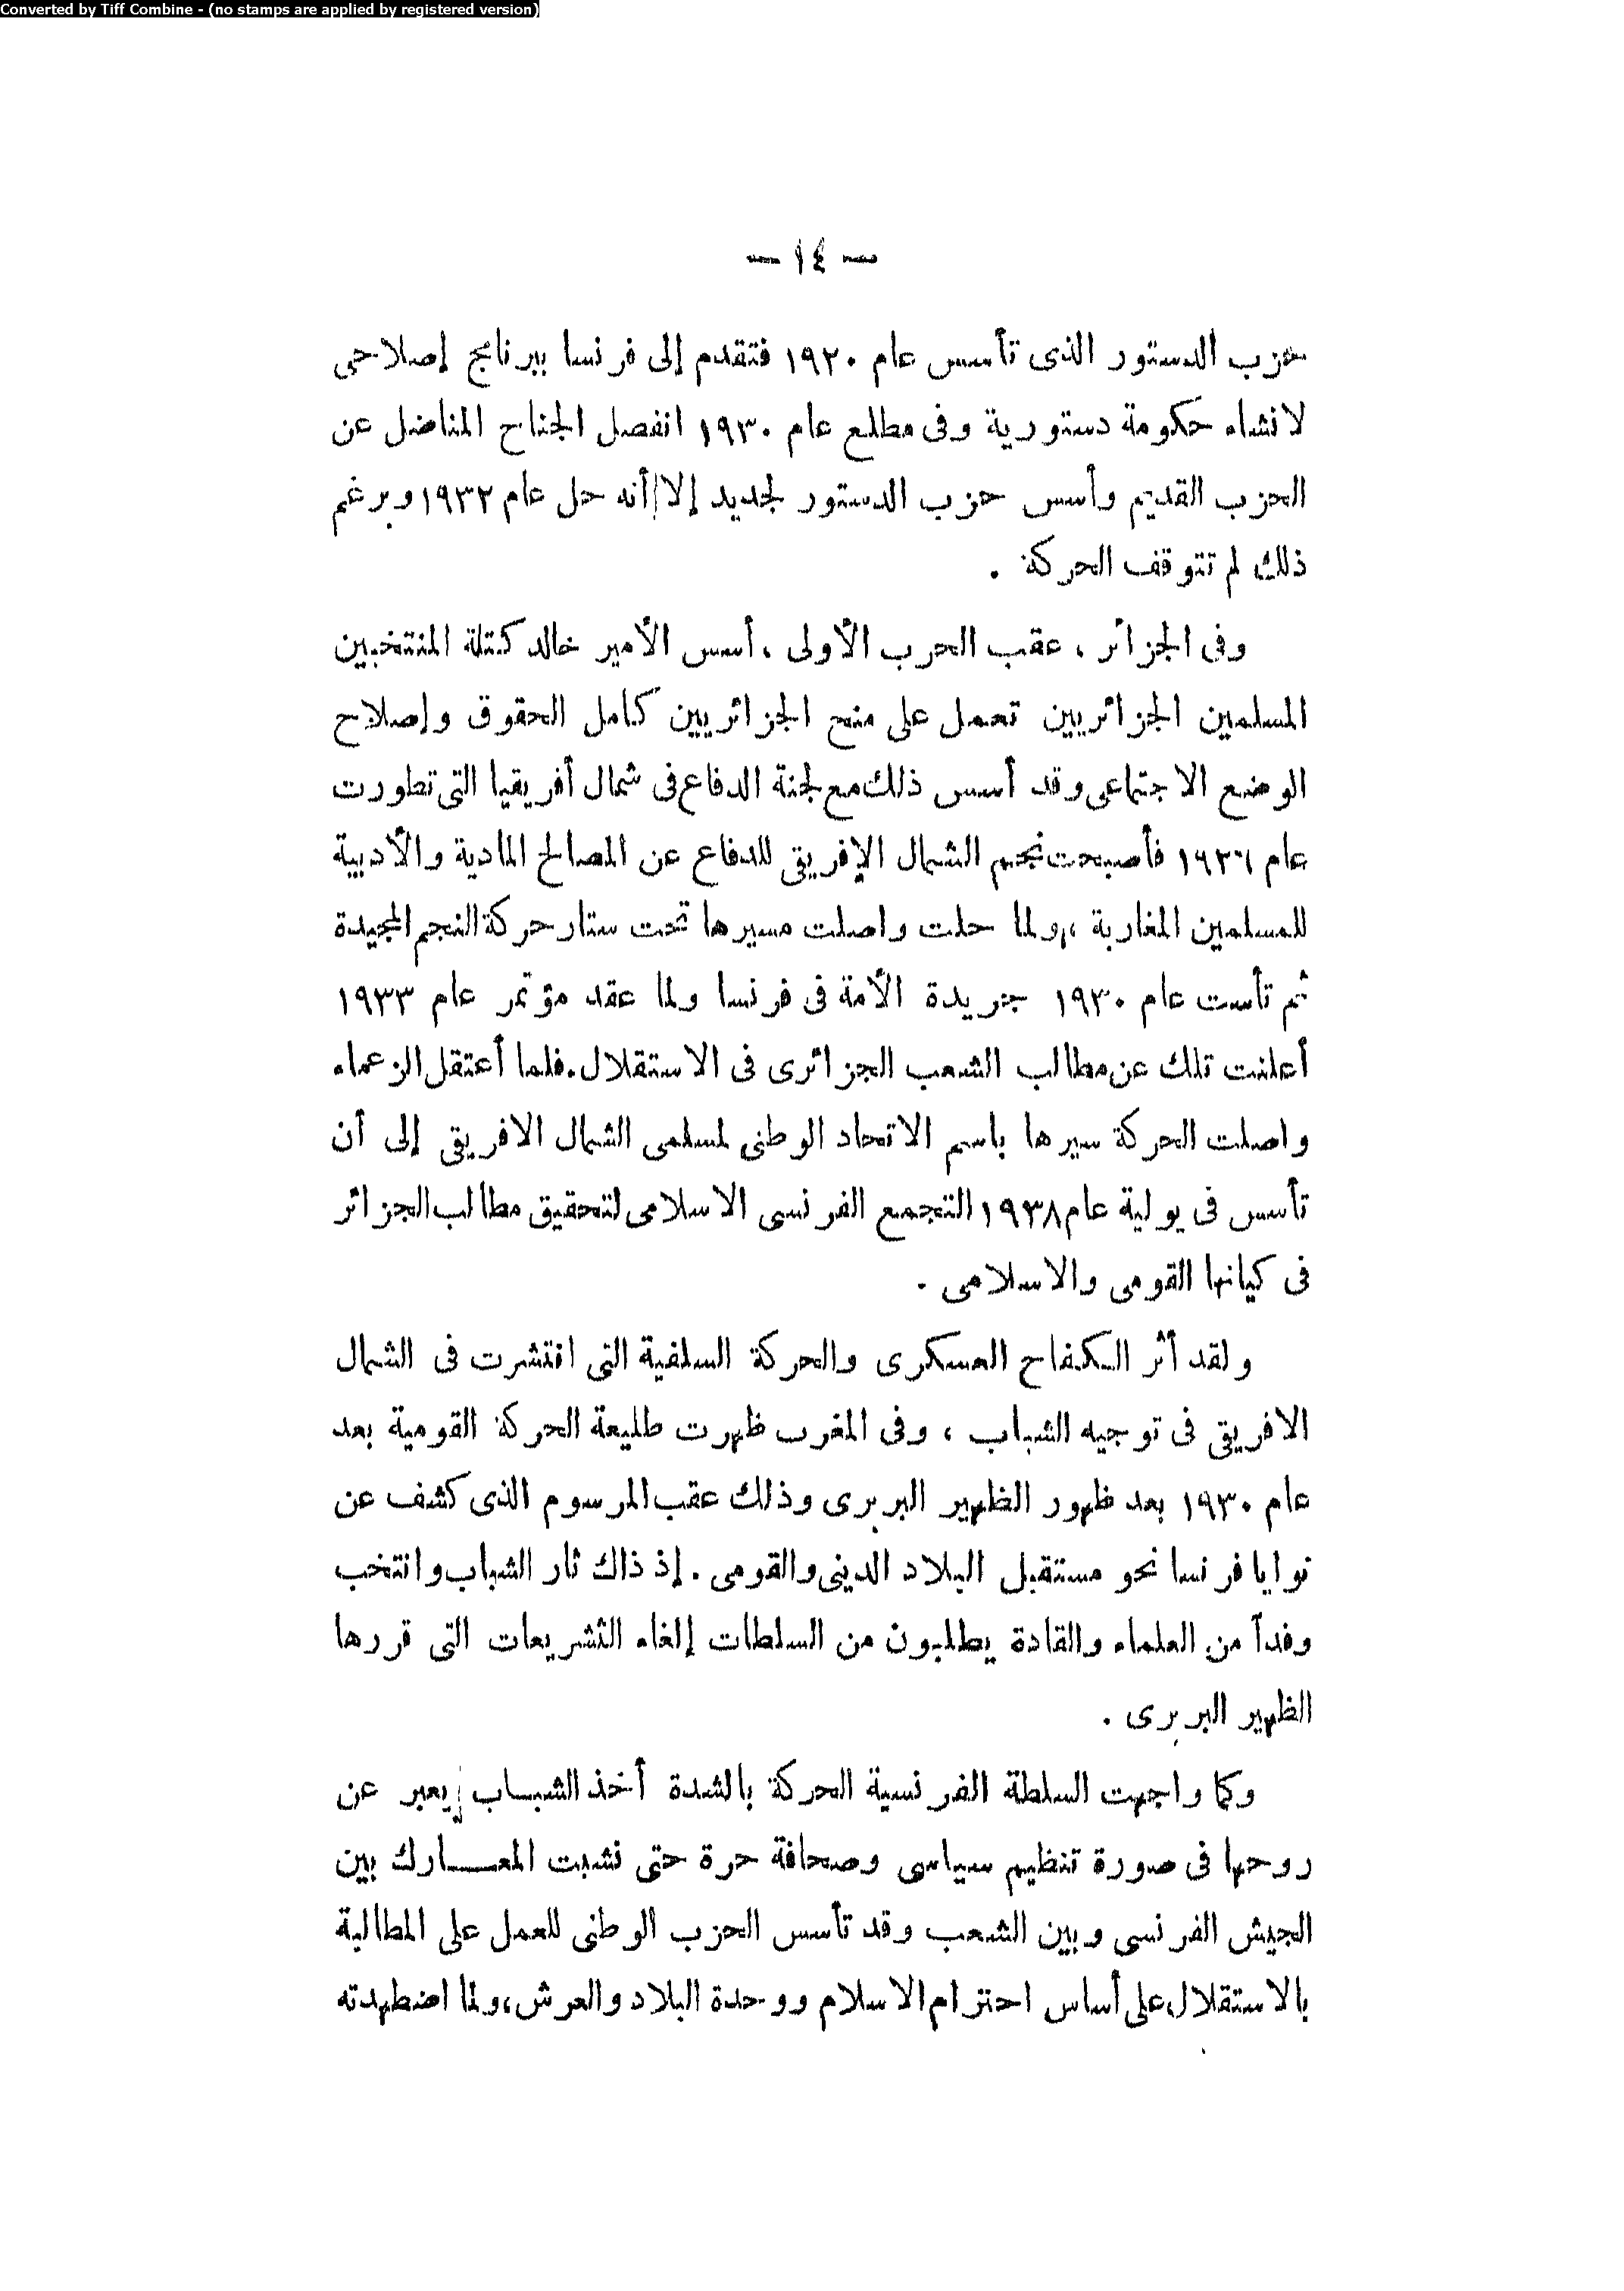 Converted by Tiff Combine - (no stamps are applied by registered version)
— ١٤ —
حزب الدستور الذى تأسس عام ١٩٢٠ فتقدم إلى فرنسا ببرنامج إصلاحى
لانشاء حكومة دستورية وفى مطلع عام ١٩٣٠ انفصل الجناح المناضل عن
الحزب القديم وأسس حزب الدستور لجديد إلا أنه حل عام ١٩٣٢ وبرغم
ذلك لم تتوقف الحركة .
وفى الجزائر ، عقب الحرب الأولى ، أسس الأمير خالد كتلة المنتخبين
المسلمين الجزائريين تعمل على منح الجزائريين كامل الحقوق وإصلاح
الوضع الاجتماعى وقد أسس ذلك مع لجنة الدفاع فى شمال أفريقيا التى تطورت
عام ١٩٢٦ فأصبحت نجم الشمال الإفريقى للدفاع عن المصالح المادية والأدبية
للمسلمين المغاربة ، ولما حلت واصلت مسيرها تحت ستار حركة النجم المجيدة
ثم تأست عام ١٩٣٠ جريدة الأمة فى فرنسا ولما عقد مؤتمر عام ١٩٣٣
أعلنت تلك عن مطالب الشعب الجزائرى فى الاستقلال . فلما أعتقل الزعماء
واصلت الحركة سيرها باسم الاتحاد الوطنى لمسلمى الشمال الافريقى إلى أن
تأسس فى يولية عام ١٩٣٨ التجمع الفرنسى الاسلامى لتحقيق مطالب الجزائر
فى كيانها القومى والاسلامى .
ولقد أثر الكفاح العسكرى والحركة السلفية التى انتشرت فى الشمال
الافريقى فى توجيه الشباب ، وفى المغرب ظهرت طليعة الحركة القومية بعد
عام ١٩٣٠ بعد ظهور الظهير البربرى وذلك عقب المرسوم الذى كشف عن
نوايا فرنسا نحو مستقبل البلاد الدينى والقومى . إذ ذاك ثار الشباب وانتخب
وفداً من العلماء والقادة يطلبون من السلطات إلغاء التشريعات التى قررها
الظهير البربرى .
وكما واجهت السلطة الفرنسية الحركة بالشدة أخذ الشباب يعبر عن
روحها فى صورة تنظيم سياسى وصحافة حرة حتى نشبت المعـــارك بين
الجيش الفرنسى وبين الشعب وقد تأسس الحزب الوطنى للعمل على المطالبة
بالاستقلال على أساس احترام الاسلام ووحدة البلاد والعرش ، ولما اضطهدته